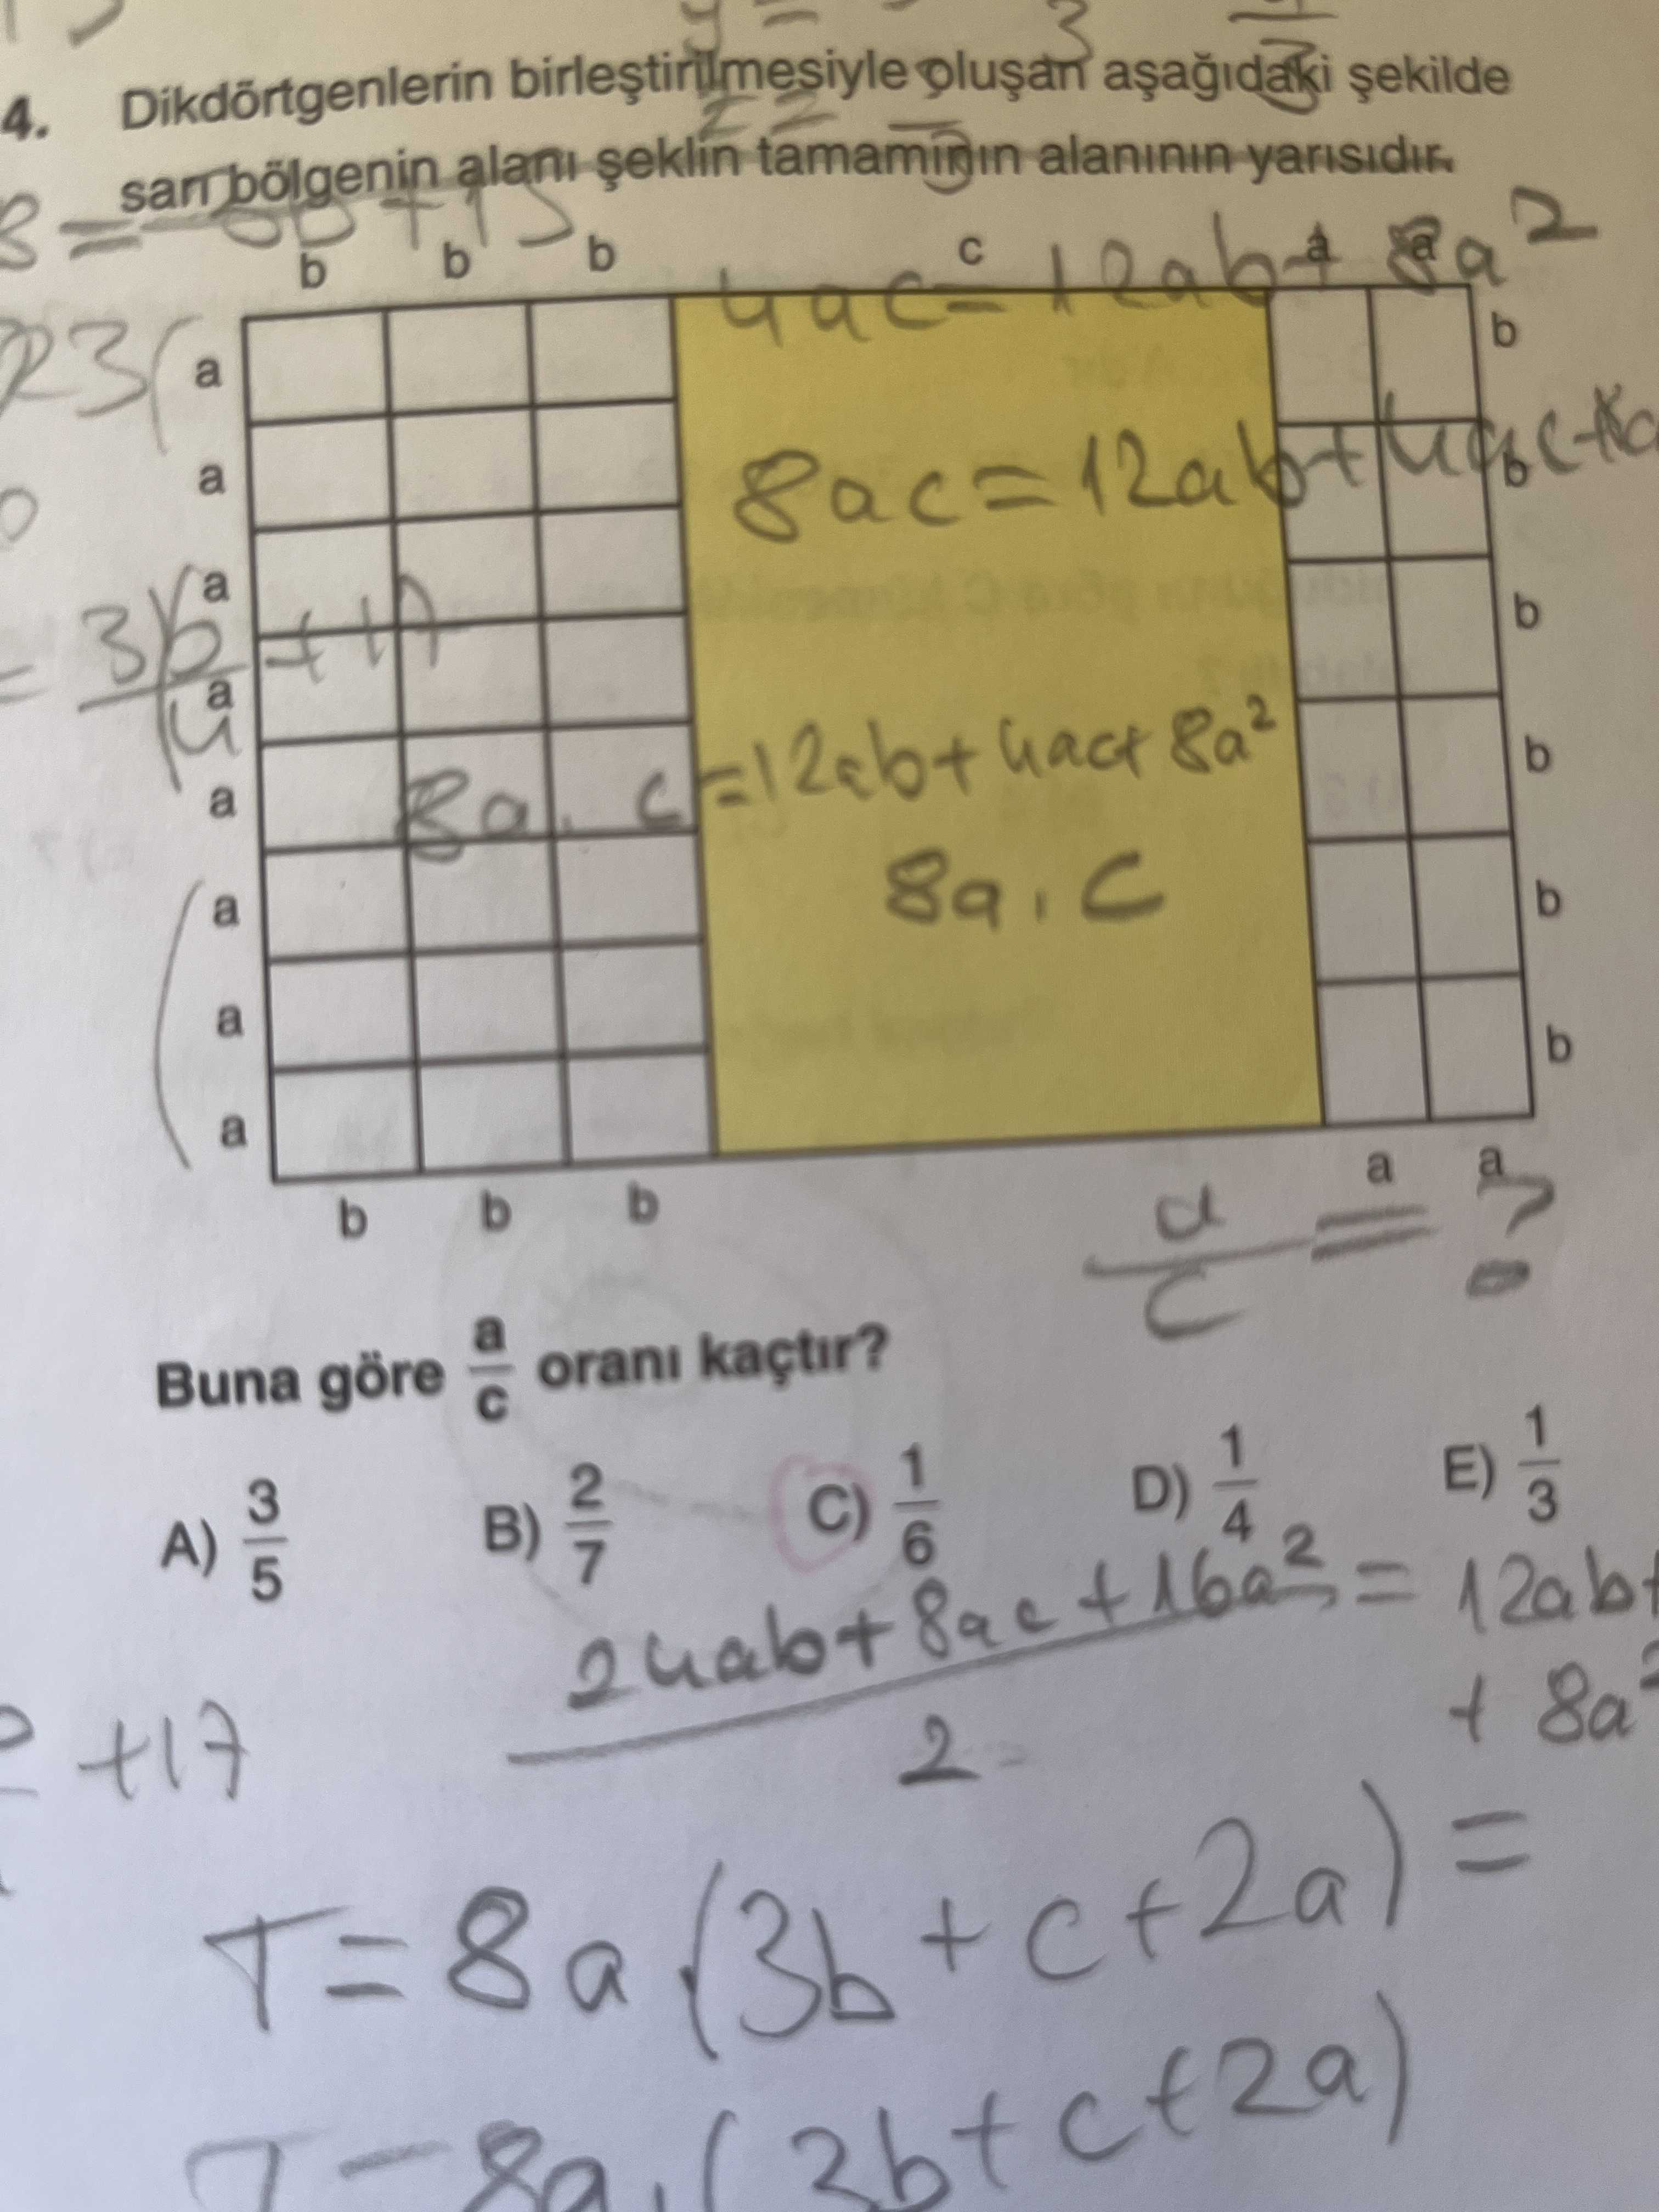 4. Dikdörtgenlerin birleştirilmesiyle oluşan aşağıdaki şekilde
sarı bölgenin alanı şeklin tamamının alanının yarısıdır.
b b b c a a
4ac = 12ab + 8a²
a b
23(
a b
8ac = 12ab + 4ac +
a b
= 3b/4 + 17
a b
8a . c = 12ab + 4ac + 8a²
a b
8a . c
a b
a
a
b b b a a
a/c = ?
Buna göre a/c oranı kaçtır?
A) 3/5 B) 2/7 C) 1/6 D) 1/4 E) 1/3
24ab + 8ac + 16a² / 2 = 12ab +
+ 8a²
+17
T = 8a (3b + c + 2a) =
T = 8a . (3b + c + 2a)